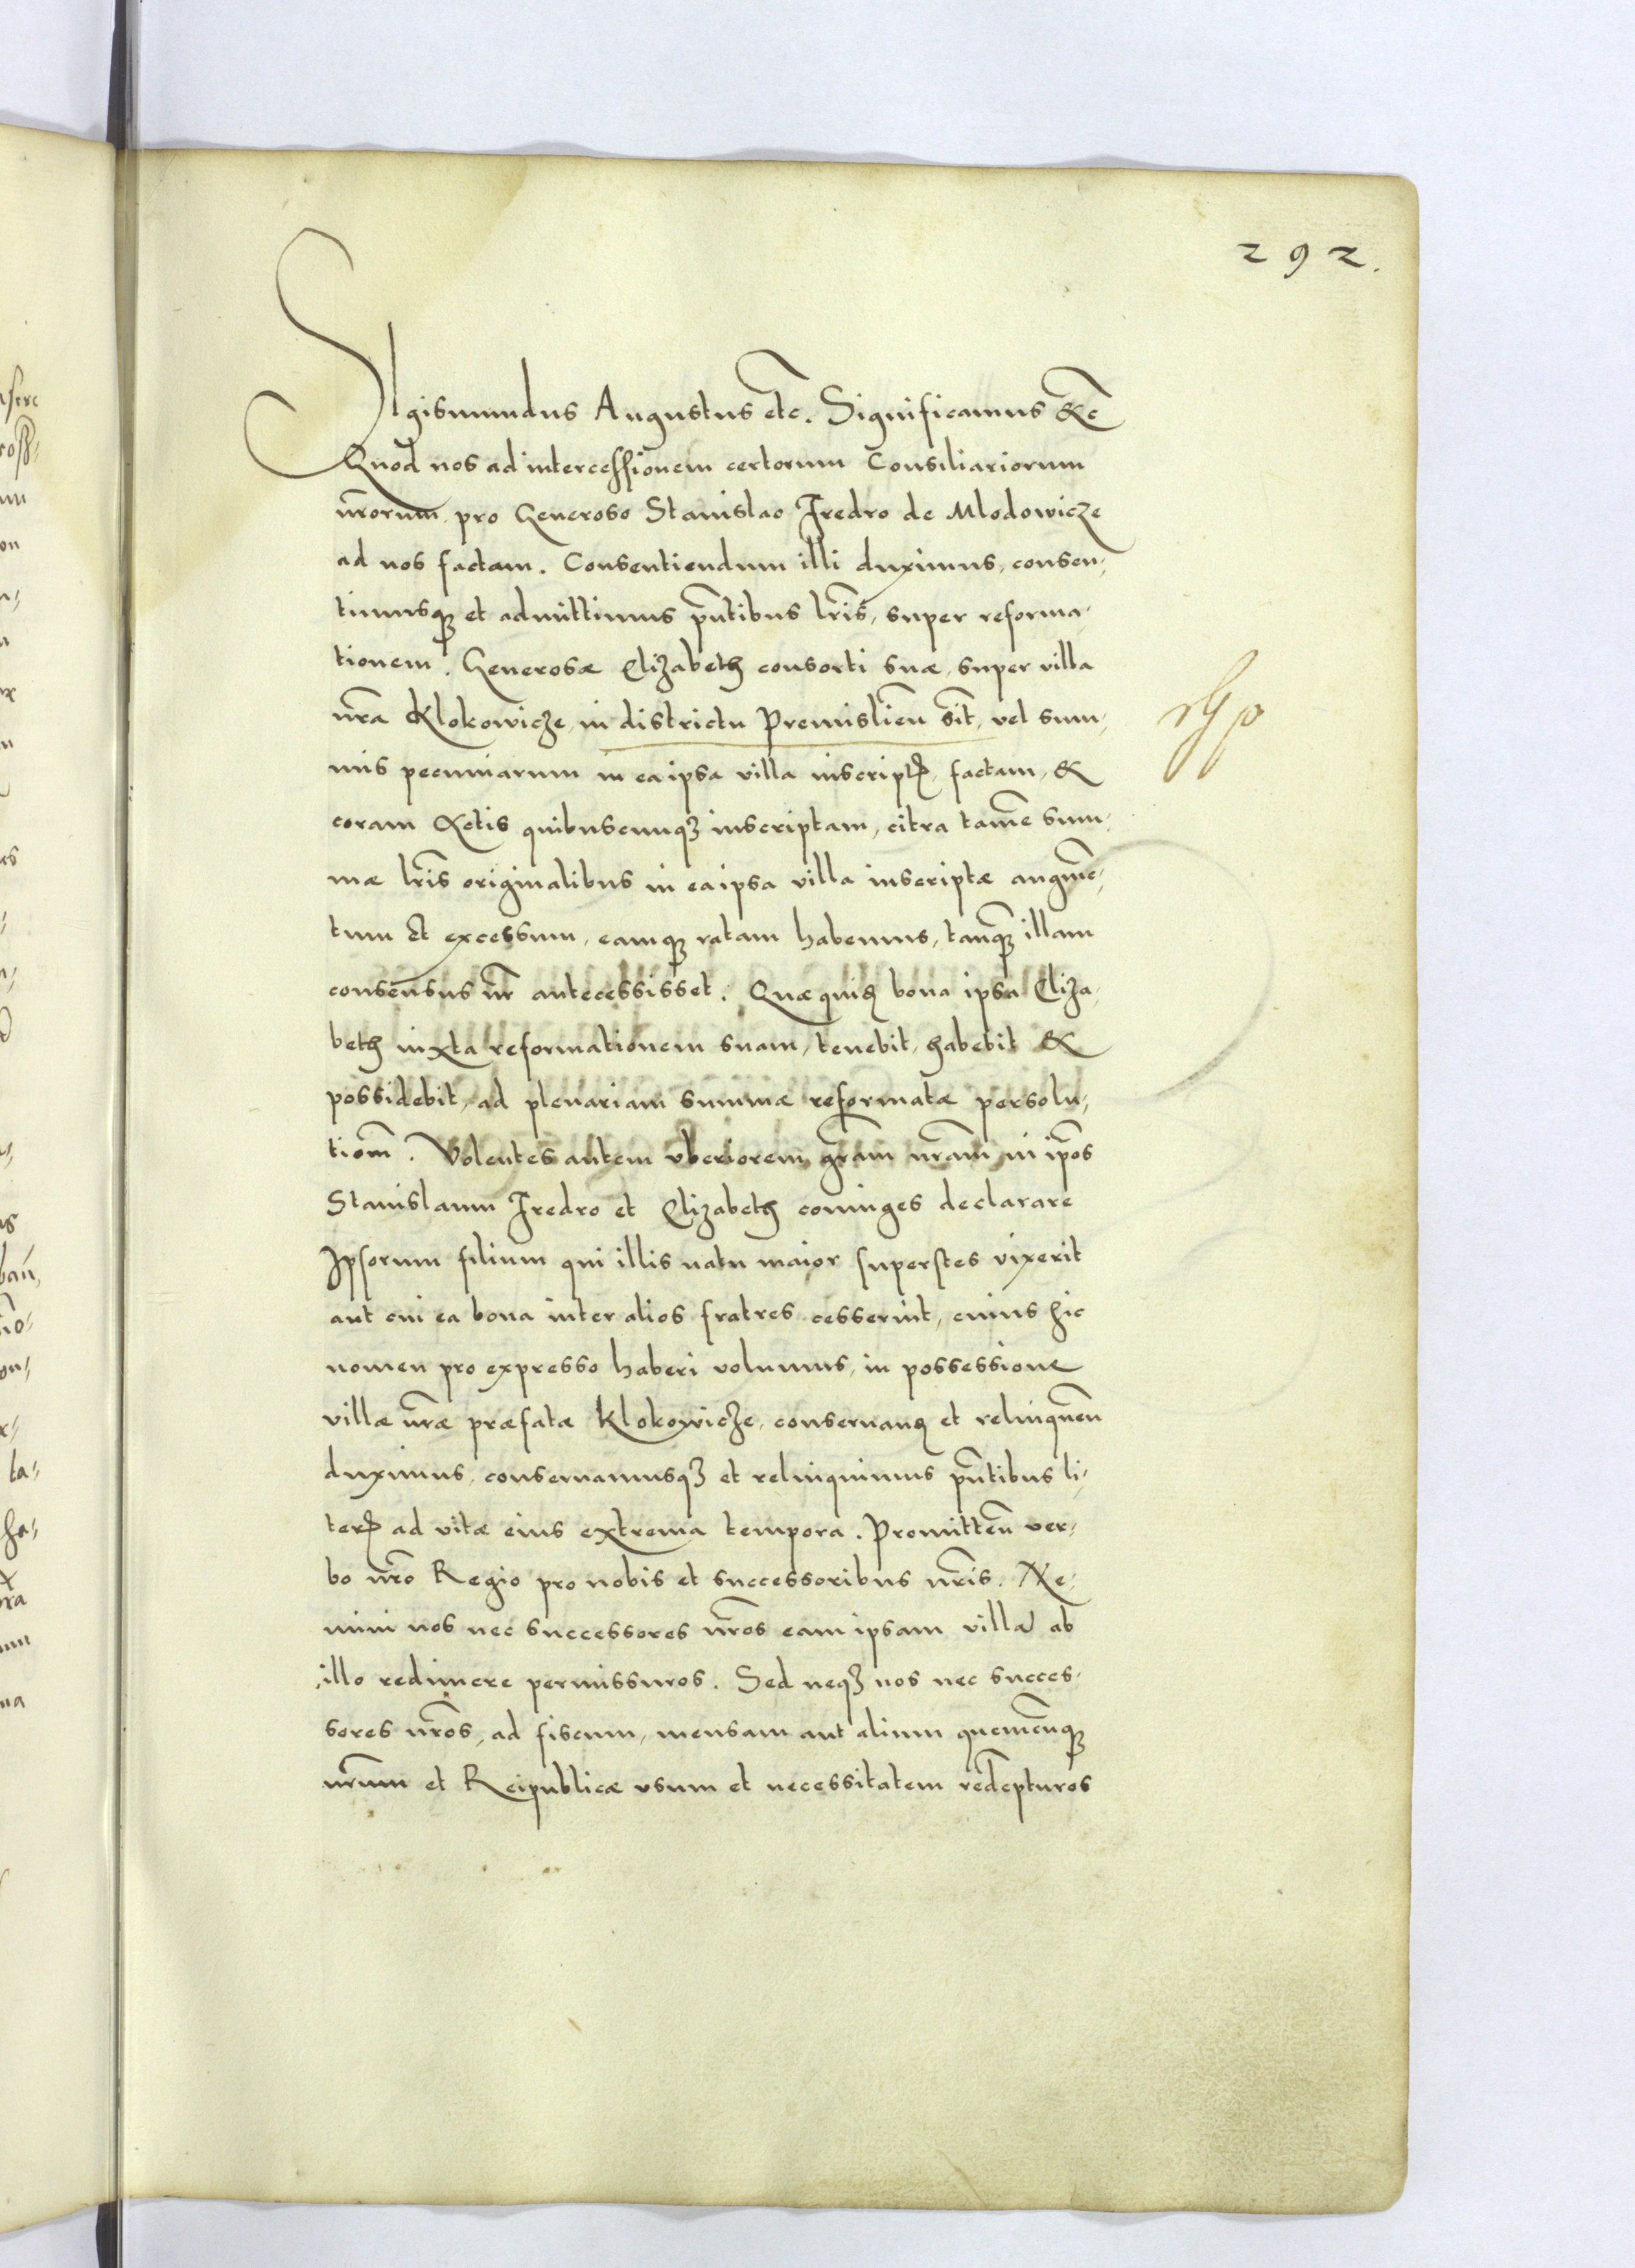 292.
SIgismundus Augustus etc. Significamus &c
Quod nos ad intercessionem certorum Consiliariorum
nr̃orum, pro Generoso Stanislao Fredro de Mlodowicze
ad nos factam. Consentiendum illi duximus, consen,
timusq̃ et admittimus pñtibus lr̃is, super reforma,
tionem. Generosæ Elizabeth consorti suæ, super villa
nr̃a Klokowicze, in districtu Premislieñ sit̃, vel sum,
mis pecuniarum in ea ipsa villa inscriptꝭ, factam, &
coram Actis quibuscunqꝫ inscriptam, citra tamẽ sum,
mæ lr̃is originalibus in ea ipsa villa inscriptæ augmẽ,
tum et excessum, eamqꝫ ratam habemus, tanqꝫ illam
consensus nr̃ antecessisset. Quæquidꝫ bona ipsa Eliza,
beth iuxta reformationem suam, tenebit, habebit &
possidebit, ad plenariam summæ reformatæ persolu,
tiom̃. Volentes autem vberiorem gr̃am nr̃am in ip̃os
Stanislaum Fredro et Elizabeth coniuges declarare
Ipsorum filium qui illis natu maior superstes vixerit
aut cui ea bona inter alios fratres cesserint, cuius hic
nomen pro expresso haberi volumus, in possessione
villæ nr̃æ præfatæ Klokowicze, conseruanꝭ et relinqueñ
duximus, conseruamusqꝫ et relinquimus pñtibus li,
terꝭ ad vitæ eius extrema tempora. Promitteñ ver,
bo nr̃o Regio pro nobis et successoribus nr̃is. Ne,
mini nos nec successores nr̃os eam ipsam villã ab
illo redimere permissuros. Sed neqꝫ nos nec succes,
sores nr̃os, ad fiscum, mensam aut alium quemcũqꝫ
nr̃um et Reipublicæ vsum et necessitatem redẽpturos